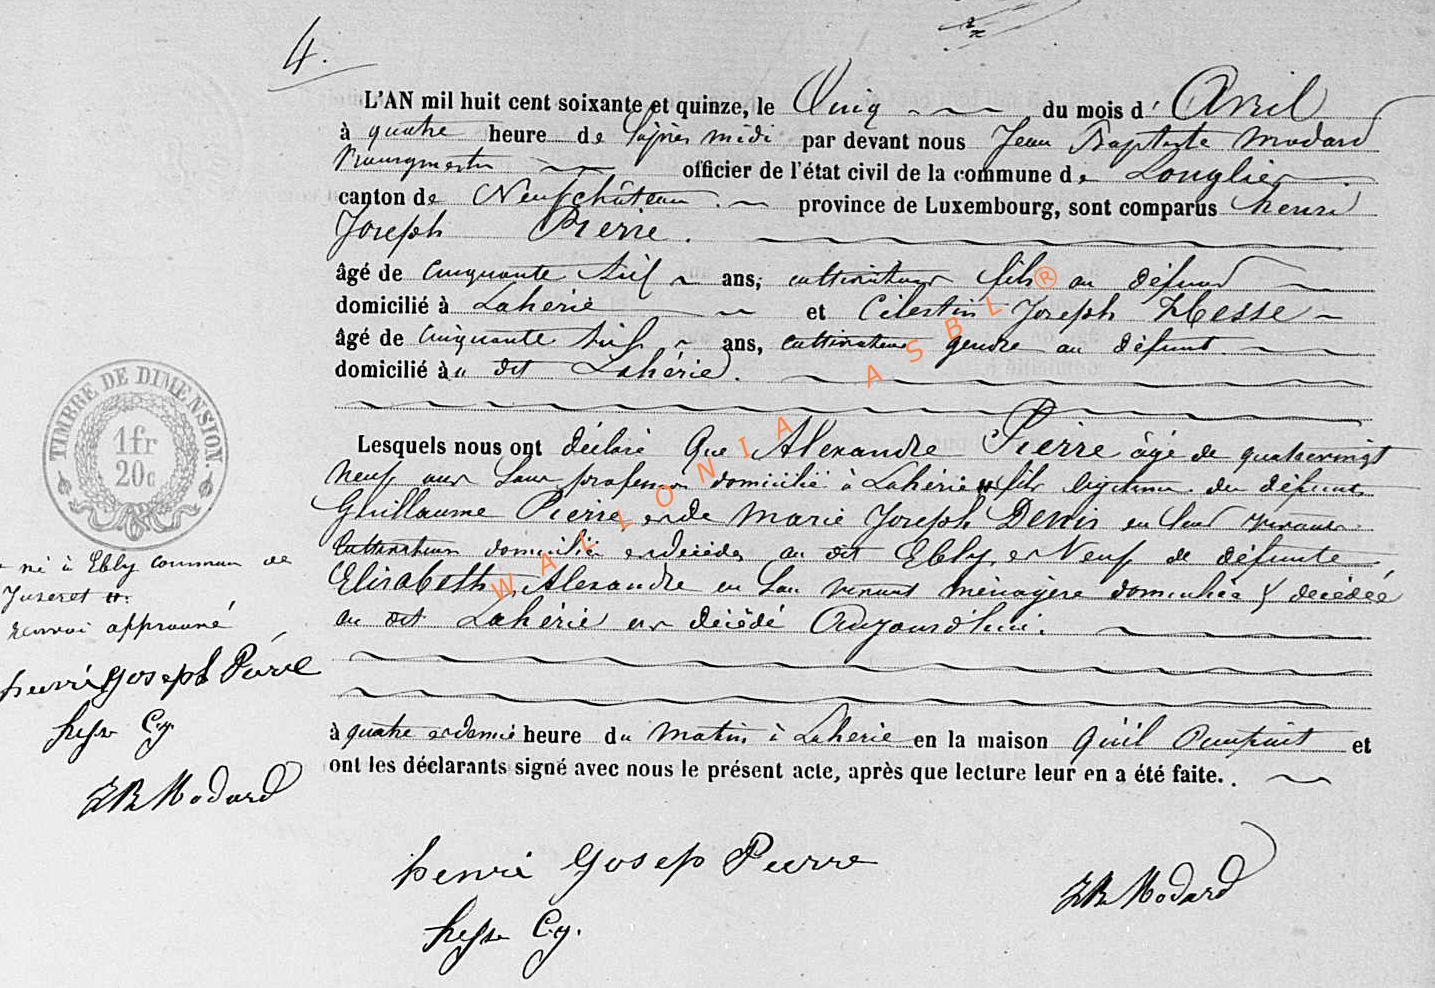 4.
L'AN mil huit cent soixante et quinze, le Cinq du mois d' Avril
à quatre heure de l'après midi par devant nous Jean Baptiste Modard
Bourgmestre officier de l'état civil de la commune de Longlier
canton de Neufchâteau. province de Luxembourg, sont comparus henri
Joseph Pierre.
âgé de Cinquante ans, cultivateur fils au défunt
domicilié à Lahérie et Célestin Joseph Hesse
âgé de Cinquante ans, cultivateur gendre au défunt.
domicilié au dit Lahérie.
Lesquels nous ont déclaré que Alexandre Pierre âgé de quatrevingt
neuf ans Sans profession domicilié à Lahérie # fils légitime des défunts
Guillaume Pierre et de Marie Joseph Denis en leur vivant
Cultivateurs domiciliés et décédés au dit Ebly et Veuf de défunte
Elisabeth Alexandre en son vivant ménagère domiciliée & décédée
au dit Lahérie est décédé Aujourd'hui.
à quatre et demie heure du matin à Lahérie en la maison qu'il occupait et
ont les déclarants signé avec nous le présent acte, après que lecture leur en a été faite.
TIMBRE DE DIMENSION.
1 fr
20c
né à Ebly commune de
Juseret #.
renvoi approuvé
henri Joseph Pierre
hesse C.j.
JB Modard
henri Josep Pierre
hesse C.j.
JB Modard
WALLONIA ASBL®